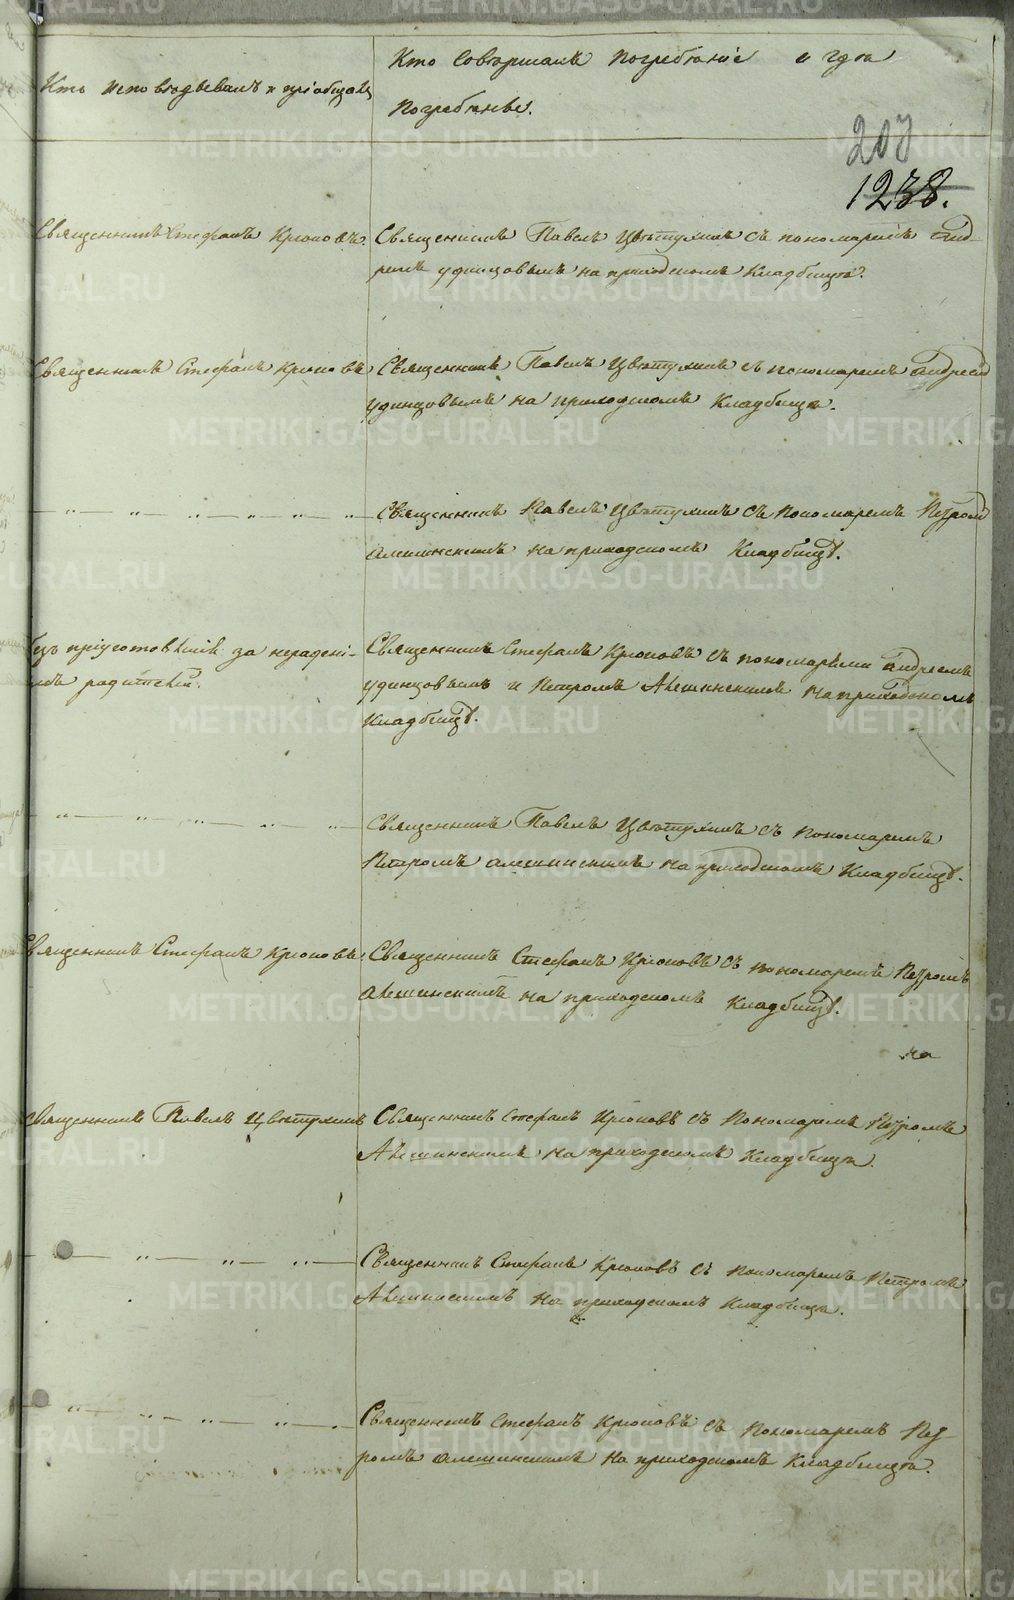 Кто исповѣдывалъ и пріобщалъ
Кто совершалъ погребеніе и гдѣ
погребены.
207
1238.
Священникъ Стефанъ Крюковъ.
Священникъ Павелъ Цвѣтухинъ съ пономаремъ Анд-
реемъ Удинцовымъ на приходскомъ кладбищѣ.
Священникъ Стефанъ Крюковъ
Священникъ Павелъ Цвѣтухинъ съ пономаремъ Андреемъ
Удинцовымъ на приходскомъ кладбищѣ.
Священникъ Павелъ Цвѣтухинъ съ пономаремъ Петромъ
Алешинскимъ на приходскомъ кладбищѣ.
безъ пріуготовленія за нерадені-
емъ родителей.
Священникъ Стефанъ Крюковъ съ пономарями Андреемъ
Удинцовымъ и Петромъ Алешинскимъ на приходскомъ
кладбищѣ.
Священникъ Павелъ Цвѣтухинъ съ пономаремъ
Петромъ Алешинскимъ на приходскомъ кладбищѣ.
Священникъ Стефанъ Крюковъ
Священникъ Стефанъ Крюковъ съ пономаремъ Петромъ
Алешинскимъ на приходскомъ кладбищѣ.
на
Священникъ Павелъ Цвѣтухинъ
Священникъ Стефанъ Крюковъ съ пономаремъ Петромъ
Алешинскимъ на приходскомъ кладбищѣ.
Священникъ Стефанъ Крюковъ съ пономаремъ Петромъ
Алешинскимъ на приходскомъ кладбищѣ.
Священникъ Стефанъ Крюковъ съ пономаремъ Пет-
ромъ Алешинскимъ на приходскомъ кладбищѣ.
METRIKI.GASO-URAL.RU